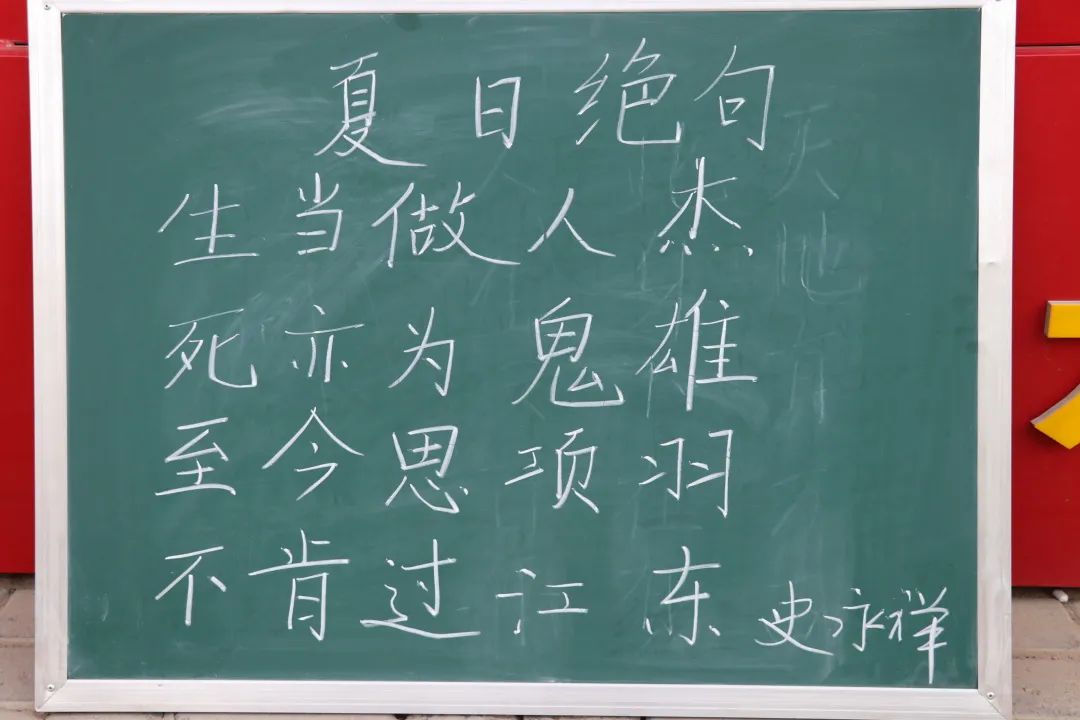 夏日绝句
生当做人杰
死亦为鬼雄
至今思项羽
不肯过江东
史泳祥